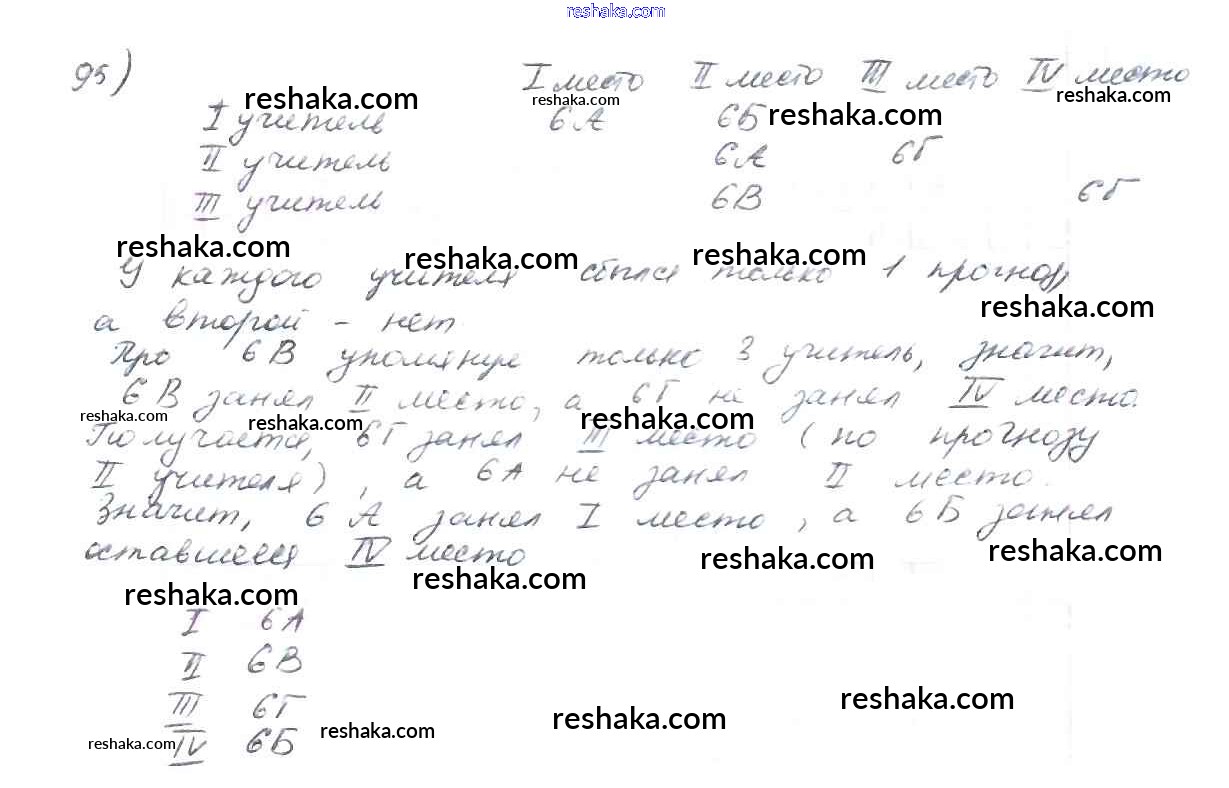 reshaka.com
95)
I место II место III место IV место
reshaka.com reshaka.com reshaka.com reshaka.com
I учитель 6А 6Б
II учитель 6А 6Г
III учитель 6В 6Г
reshaka.com reshaka.com reshaka.com
У каждого учителя сбылся только 1 прогноз,
reshaka.com
а второй - нет.
Про 6В упомянул только 3 учитель, значит,
6В занял II место, а 6Г не занял IV место.
reshaka.com reshaka.com reshaka.com
Получается, 6Г занял III место (по прогнозу
II учителя), а 6А не занял II место.
Значит, 6А занял I место, а 6Б занял
оставшееся IV место
reshaka.com reshaka.com reshaka.com
reshaka.com
I 6А
II 6В
III 6Г
reshaka.com reshaka.com
IV 6Б
reshaka.com reshaka.com